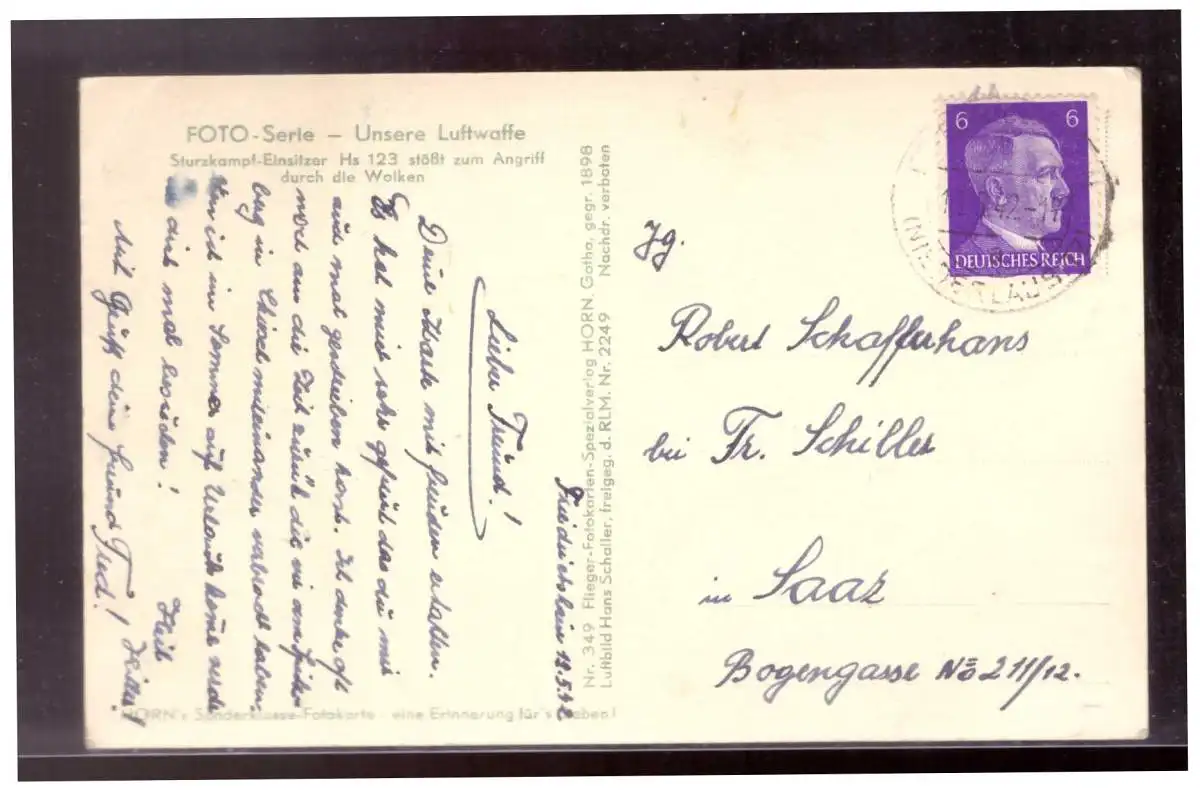 FOTO-Serie – Unsere Luftwaffe
Sturzkampf-Einsitzer Hs 123 stößt zum Angriff
durch die Wolken
Nr. 349 Flieger-Fotokarten-Spezialverlag HORN, Gotha, gegr. 1898
Luftbild Hans Schaller, freigeg. d. RLM. Nr. 2249 Nachdr. verboten
HORN's Sonderklasse-Fotokarte eine Erinnerung für's Leben!
13.5.42
Lieber Freund!
Deine Karte mit freuden erhalten.
Es hat mich sehr gefreut das du mir
auch mal geschrieben hast. Ich denke oft
noch an die Zeit zurück die wir am
berg in miteinander verbracht haben.
Wenn ich im Sommer auf Urlaub kome werde
ich dich mal besuchen! Heil Hitler!
Mit Gruß dein freund Fred!
6 6
DEUTSCHES REICH
Jg.
Robert Schafferhans
bei Fr. Schiller
in Saaz
Bogengasse No 211/12.